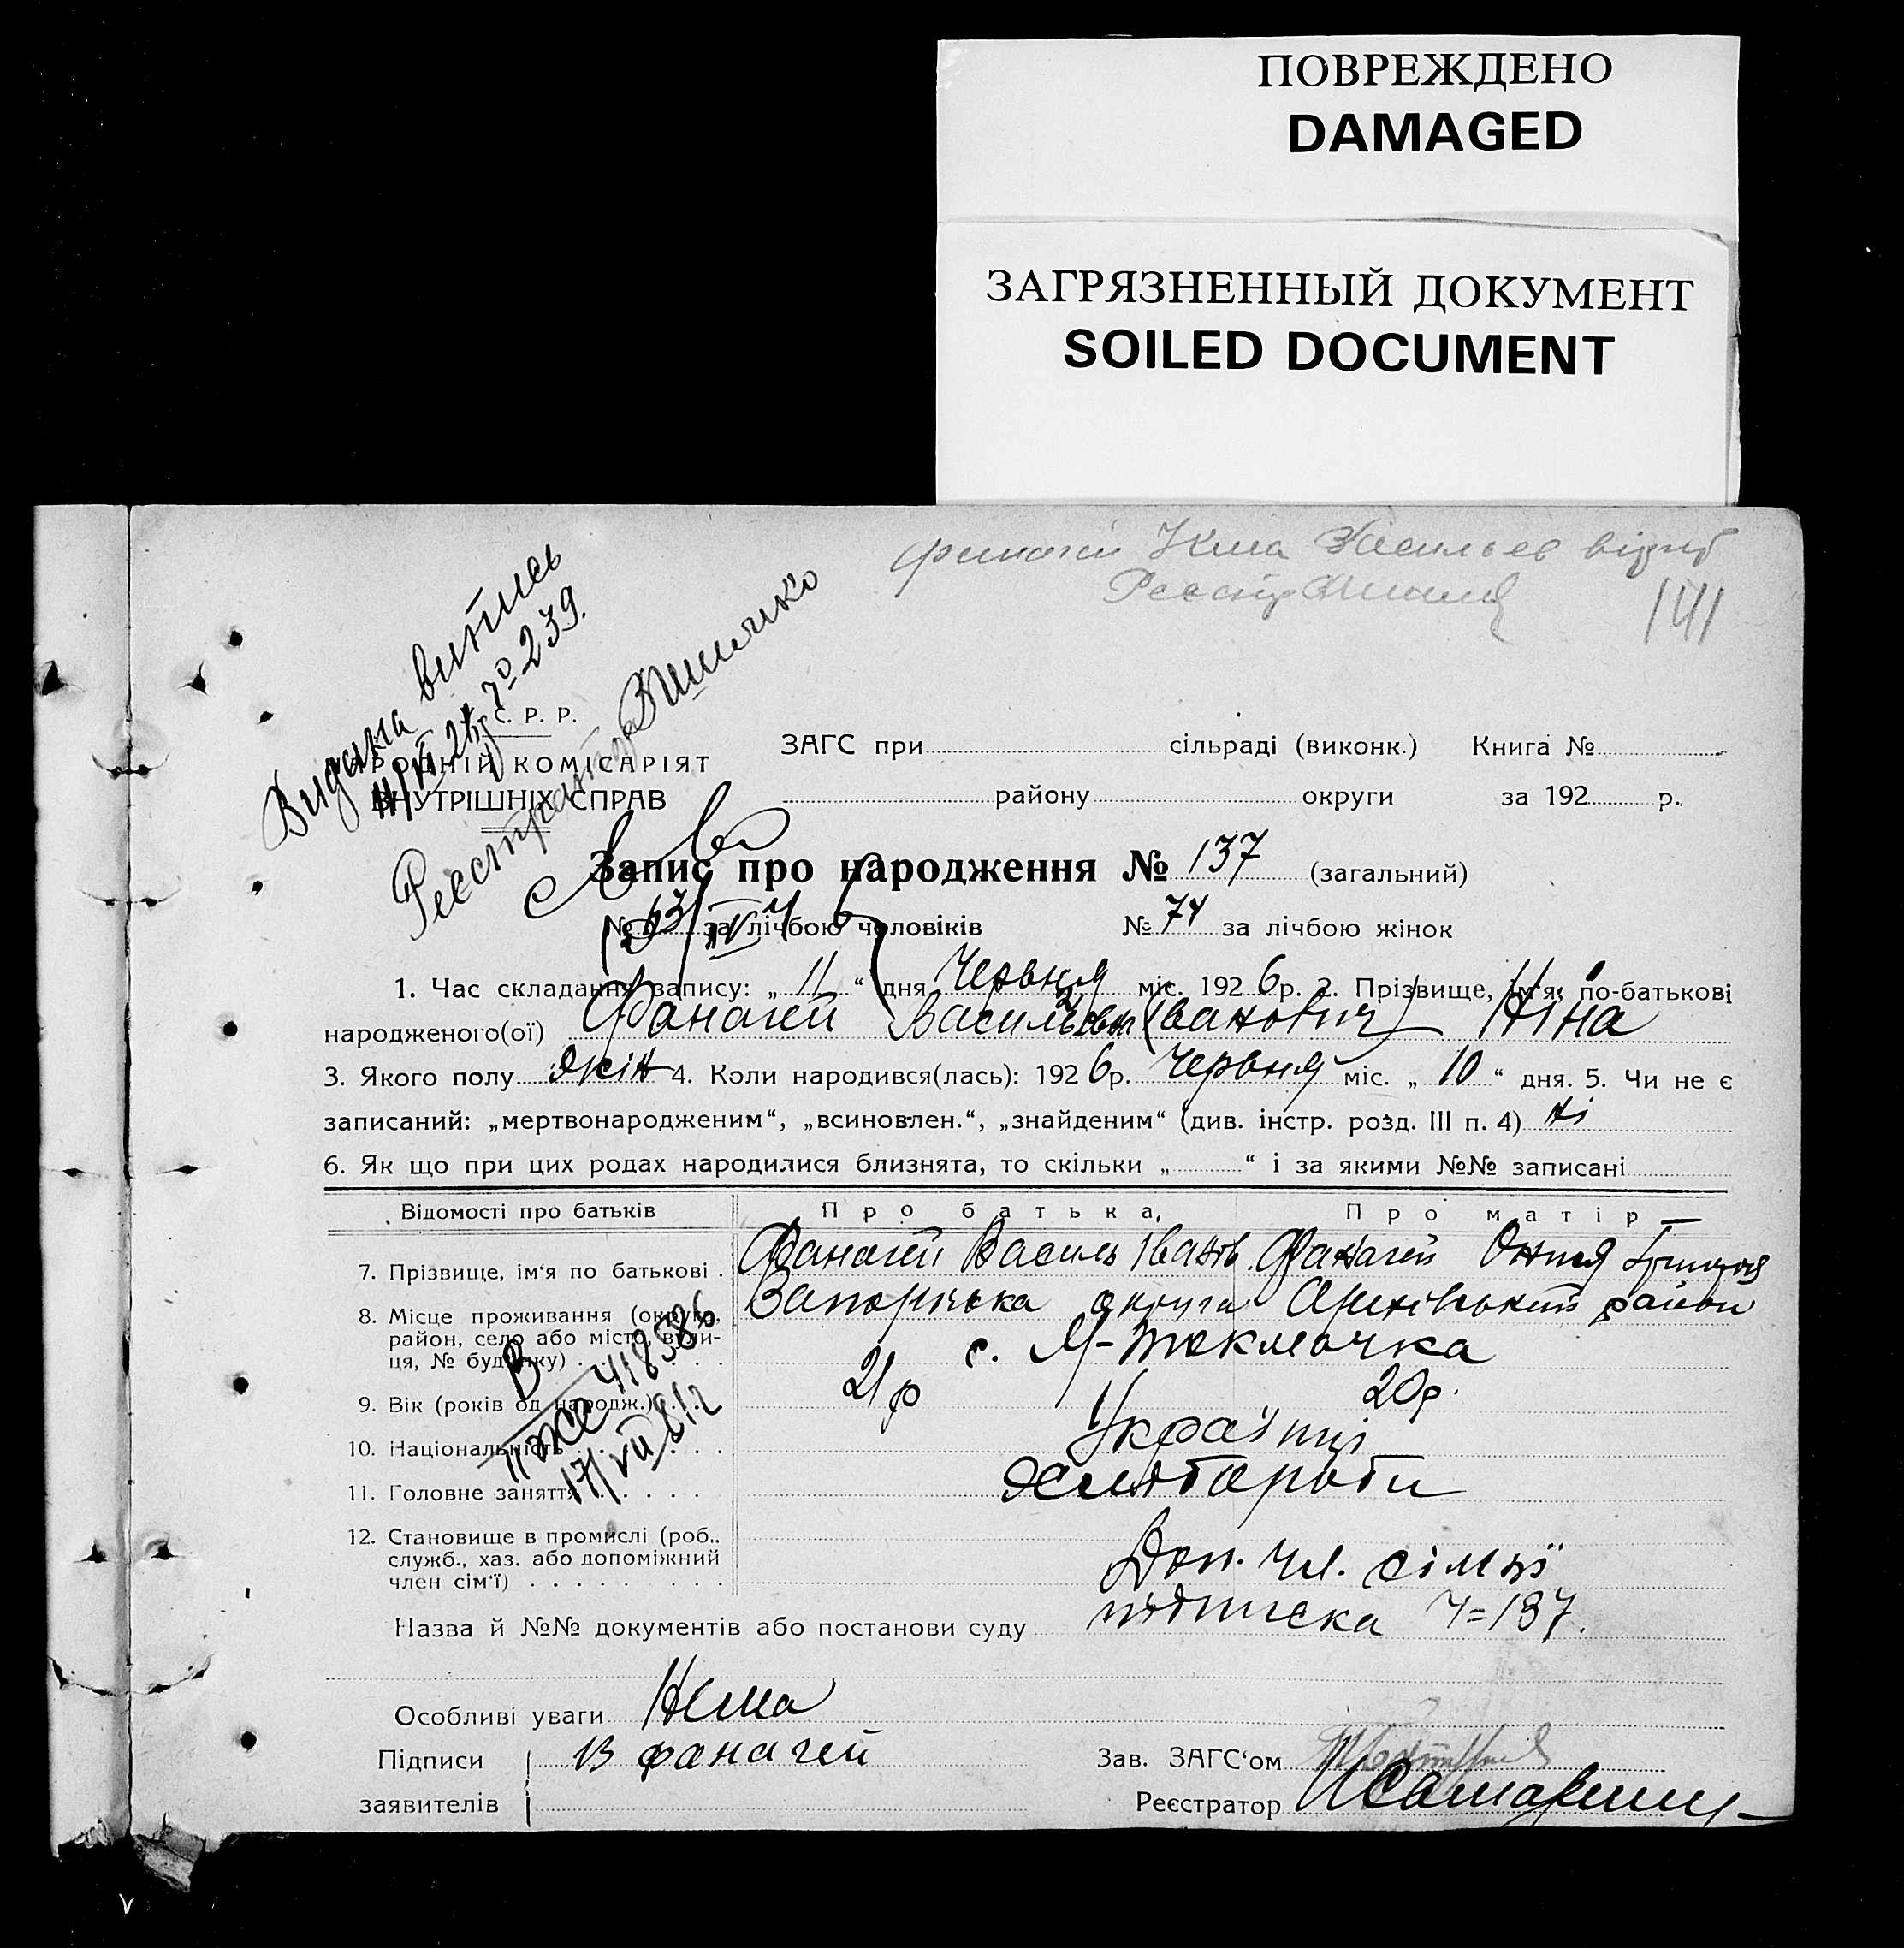 ПОВРЕЖДЕНО
DAMAGED
ЗАГРЯЗНЕННЫЙ ДОКУМЕНТ
SOILED DOCUMENT
141
Видана випись
№ 239.
Реєстратор
С. Р. Р.
НАРОДНІЙ КОМІСАРІЯТ
ВНУТРІШНІХ СПРАВ
ЗАГС при сільраді (виконк.) Книга №
району округи за 192 р.
Запис про народження № 137 (загальний)
№ 63 за лічбою чоловіків № 74 за лічбою жінок
1. Час складання запису: „ 11 “ дня Червня міс. 192 6 р. 2. Прізвище, ім'я, по-батькові
народженого(ої) Фанагей Васильовна (Іванович) Ніна
3. Якого полу жін 4. Коли народився(лась): 192 6 р. Червня міс. „ 10 “ дня. 5. Чи не є
записаний: „мертвонародженим“, „всиновлен.“, „знайденим“ (див. інстр. розд. III п. 4) ні
6. Як що при цих родах народилися близнята, то скільки „ “ і за якими №№ записані
Відомості про батьків Про батька, Про матір
7. Прізвище, ім'я по батькові . Фанагей Василь Іванов. Фанагей
8. Місце проживання (округа, Запорізька округа Оріхівський район
район, село або місто, вули-
ця, № будинку) с. М-Токмачка
9. Вік (років од народж.) 21 р 20 р.
10. Національність Українці
11. Головне заняття Хлібороби
12. Становище в промислі (роб.,
служб., хаз. або допоміжний
член сім'ї) Доп. чл. сімї
Назва й №№ документів або постанови суду підписка Ч=137.
Особливі уваги Нема
Підписи В фанагей Зав. ЗАГС'ом
заявителів Реєстратор